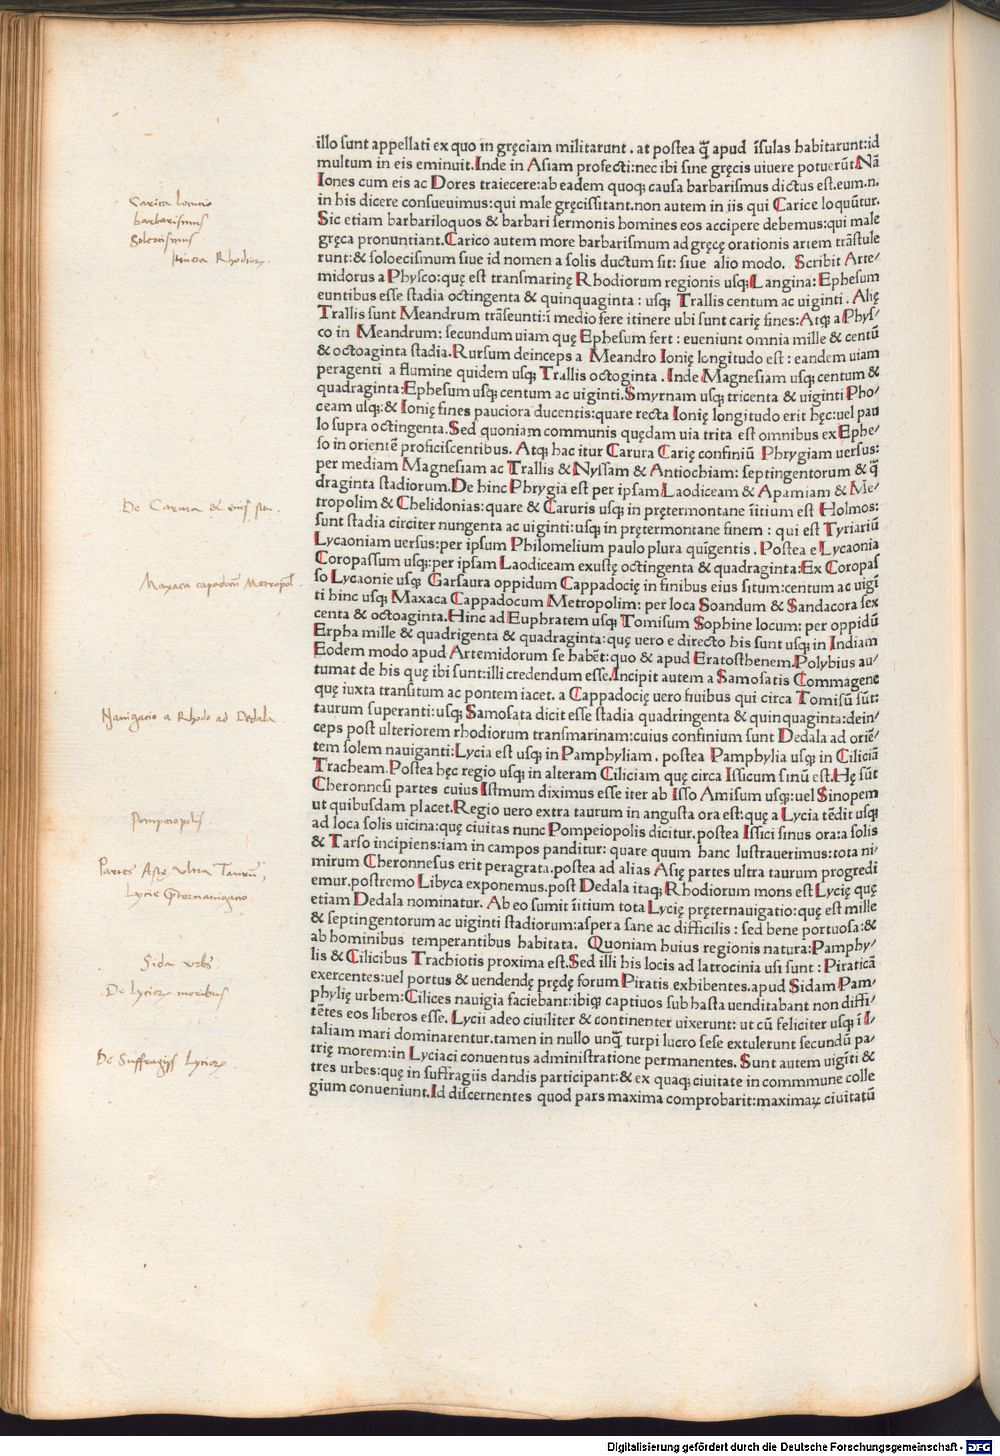 illo sunt appellati ex quo in gręciam militarunt . at postea q̃ apud ĩsulas habitarunt:id
multum in eis eminuit.Inde in Asiam profecti:nec ibi sine gręcis uiuere potuerũt.Nã
Iones cum eis ac Dores traiecere:ab eadem quoqꝫ causa barbarismus dictus est.eum.n.
in his dicere consueuimus:qui male gręcissitant.non autem in iis qui Carice loquũtur.
Sic etiam barbariloquos & barbari sermonis homines eos accipere debemus:qui male
gręca pronuntiant.Carico autem more barbarismum ad gręcę orationis artem trãstule
runt:& soloecismum siue id nomen a solis ductum sit: siue alio modo. Scribit Arte/
midorus a Physco:quę est transmarinę Rhodiorum regionis usqꝫ Langina: Ephesum
euntibus esse stadia octingenta & quinquaginta : usqꝫ Trallis centum ac uiginti . Alię
Trallis sunt Meandrum trãseunti:ĩ medio fere itinere ubi sunt carię fines:Atqꝫ a Phys/
co in Meandrum: secundum uiam quę Ephesum fert : eueniunt omnia mille & centũ
& octoaginta stadia.Rursum deinceps a Meandro Ionię longitudo est : eandem uiam
peragenti a flumine quidem usqꝫ Trallis octoginta . Inde Magnesiam usqꝫ centum &
quadraginta:Ephesum usqꝫ centum ac uiginti.Smyrnam usqꝫ tricenta & uiginti Pho/
ceam usqꝫ:& Ionię fines pauciora ducentis:quare recta Ionię longitudo erit hęc:uel pau
lo supra octingenta.Sed quoniam communis quędam uia trita est omnibus ex Ephe/
so in orientẽ proficiscentibus. Atqꝫ hac itur Carura Carię confiniũ Phrygiam uersus:
per mediam Magnesiam ac Trallis & Nyssam & Antiochiam: septingentorum & q̃
draginta stadiorum.De hinc Phrygia est per ipsam Laodiceam & Apamiam & Me/
tropolim & Chelidonias:quare & Caruris usqꝫ in prętermontane ĩitium est Holmos:
sunt stadia circiter nungenta ac uiginti:usqꝫ in prętermontane finem : qui est Tyriariũ
Lycaoniam uersus:per ipsum Philomelium paulo plura quigentis . Postea e Lycaonia
Coropassum usqꝫ:per ipsam Laodiceam exustę octingenta & quadraginta:Ex Coropas
so Lycaonie usqꝫ Garsaura oppidum Cappadocię in finibus eius situm:centum ac uigĩ
ti hinc usqꝫ Maxaca Cappadocum Metropolim: per loca Soandum & Sandacora sex
centa & octoaginta.Hinc ad Euphratem usqꝫ Tomisum Sophine locum: per oppidũ
Erpha mille & quadrigenta & quadraginta:quę uero e directo his sunt usqꝫ in Indiam
Eodem modo apud Artemidorum se habẽt:quo & apud Eratosthenem.Polybius au/
tumat de his quę ibi sunt:illi credendum esse.Incipit autem a Samosatis Commagene
quę iuxta transitum ac pontem iacet. a Cappadocię uero fiuibus qui circa Tomisũ sũt:
taurum superanti:usqꝫ Samosata dicit esse stadia quadringenta & quinquaginta:dein/
ceps post ulteriorem rhodiorum transmarinam:cuius confinium sunt Dedala ad oriẽ/
tem solem nauiganti:Lycia est usqꝫ in Pamphyliam . postea Pamphylia usqꝫ in Ciliciã
Tracheam.Postea hęc regio usqꝫ in alteram Ciliciam quę circa Issicum sinũ est.Hę sũt
Cheronnesi partes cuius Istmum diximus esse iter ab Isso Amisum usqꝫ:uel Sinopem
ut quibusdam placet.Regio uero extra taurum in angusta ora est:quę a Lycia tẽdit usqꝫ
ad loca solis uicina:quę ciuitas nunc Pompeiopolis dicitur.postea Issici sinus orata solis
& Tarso incipiens:iam in campos panditur: quare quum hanc lustrauerimus:tota ni/
mirum Cheronnesus erit peragrata.postea ad alias Asię partes ultra taurum progredi
emur.postremo Libyca exponemus.post Dedala itaqꝫ Rhodiorum mons est Lycię quę
etiam Dedala nominatur. Ab eo sumit ĩitium tota Lycię pręternauigatio:quę est mille
& septingentorum ac uiginti stadiorum:aspera sane ac difficilis : sed bene portuosa:&
ab hominibus temperantibus habitata. Quoniam huius regionis natura:Pamphy/
lis & Cilicibus Trachiotis proxima est.Sed illi his locis ad latrocinia usi sunt : Piraticã
exercentes:uel portus & uendendę prędę forum Piratis exhibentes.apud Sidam Pam/
phylię urbem:Cilices nauigia faciebant:ibiqꝫ captiuos sub hasta uenditabant non diffi/
tẽtes eos liberos esse. Lycii adeo ciuiliter & continenter uixerunt: ut cũ feliciter usqꝫ ĩ I/
taliam mari dominarentur.tamen in nullo unq̃ turpi lucro sese extulerunt secundũ pa/
trię morem:in Lyciaci conuentus administratione permanentes. Sunt autem uigĩti &
tres urbes:quę in suffragiis dandis participant:& ex quaqꝫ ciuitate in commmune colle
gium conueniunt.Id discernentes quod pars maxima comprobarit:maximaꝝ ciuitatũ
Carica locutio
barbarismus
Solecismus
Itinera Rhodioꝝ.
De Carura &
Maxaca capadocũ Metropol
Navigatio a Rhodo ad Dedala
Pompeiopolis.
Partes Asię ultra Taurũ,
Lycie pręternavigatio
Sida urbs.
De Lycioꝝ moribus
De Suffragijs Lycioꝝ
Digitalisierung gefördert durch die Deutsche Forschungsgemeinschaft - DFG